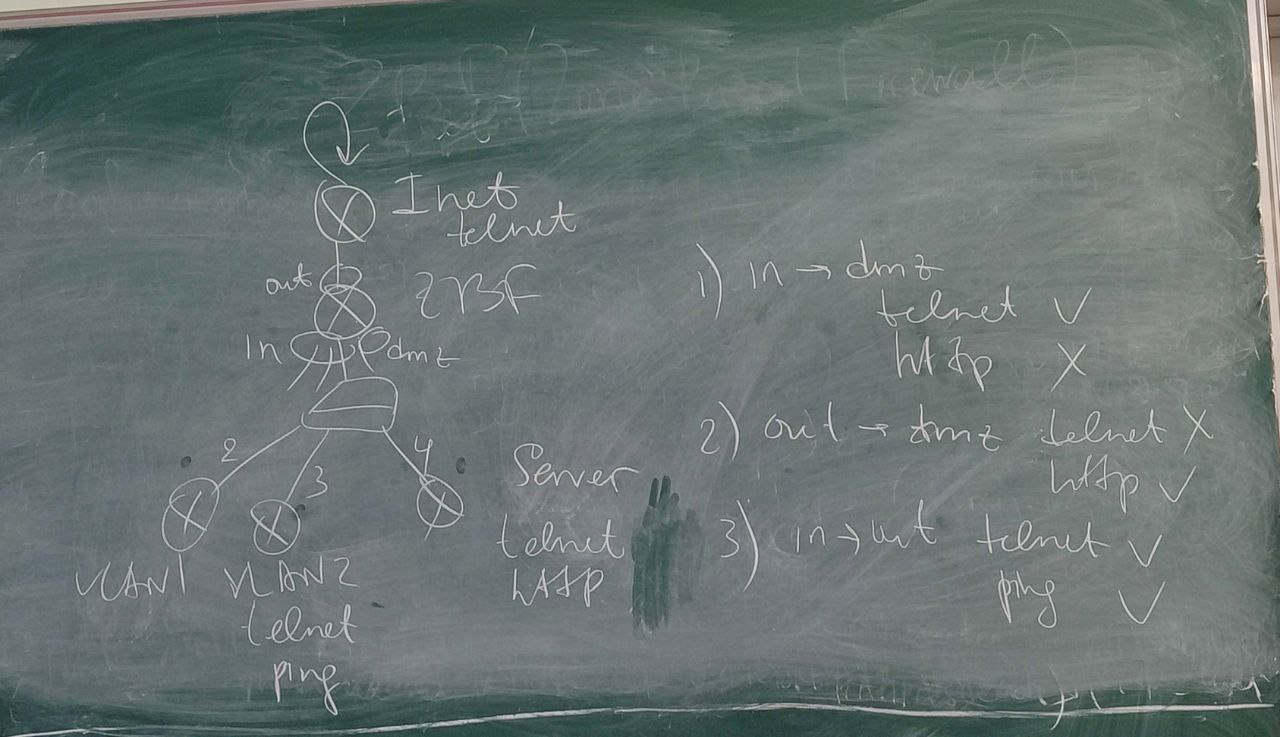 (Zone Based Firewall)
Inet
telnet
out
ZBF
In
dmz
2
3
4
VLAN1
VLAN2
telnet
ping
Server
telnet
http
1) in → dmz
telnet V
http X
2) out → dmz telnet X
http V
3) in → out telnet V
ping V